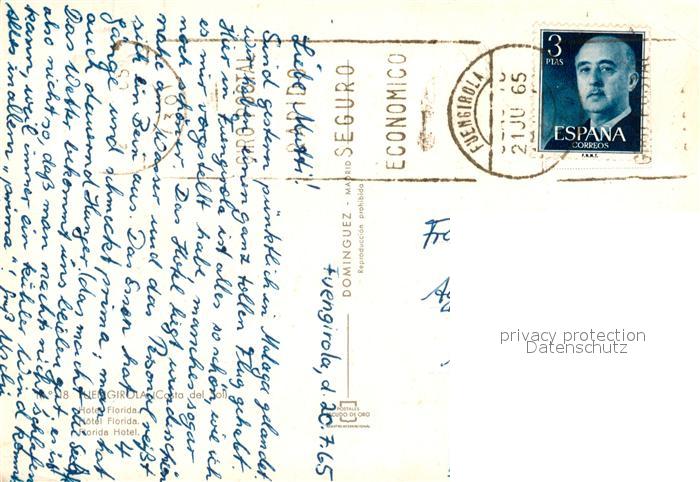 3
PTAS
ESPAÑA
CORREOS
F.N.M.T.
FUENGIROLA
21 JU 65
GIRO POSTAL
RAPIDO
SEGURO
ECONOMICO
Fuengirola, d. 20.7.65
Liebe Mutti!
Sind gestern pünktlich in Malaga gelandet,
wir hatten einen ganz tollen Flug gehabt.
Hier in Fuengirola ist alles so schön wie ich
es mir vorgestellt habe, manches sogar
noch schöner. Das Hotel liegt wunderschön
nahe am Wasser und das Personal reißt
sich ein Bein aus. Das Essen hat 4
Gänge und schmeckt prima; man hat
auch dauernd Hunger (das macht die Seeluft
Das Wetter bekommt uns beiden gut, es ist
also nicht so, daß man nachts nicht schlafen
kann, weil immer ein kühler Wind kommt
Alles in allem "prima".
DOMINGUEZ - MADRID
Reproducción prohibida
POSTALES
ESCUDO DE ORO
N.º 18 FUENGIROLA (Costa del Sol)
Hotel Florida.
Hôtel Florida.
Florida Hotel.
Fr
privacy protection
Datenschutz